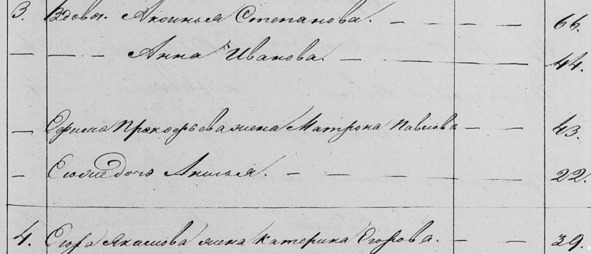 3. Вдова Аксинья Степанова. — — 66.
— — Анна Иванова. — — 44.
— Ефима Прокофьева жена Матрона Павлова — — 43.
— Ево же дочь Анисья. — — — 22.
4. Егора Якимова жена Катерина Егорова. — — 39.